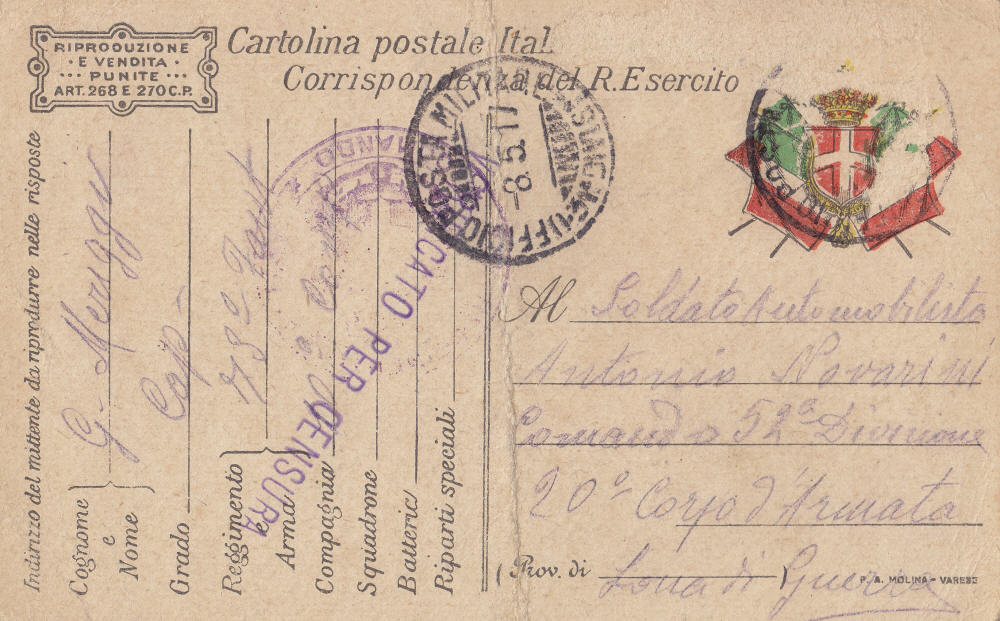 RIPRODUZIONE
E VENDITA
PUNITE
ART. 268 E 270 C.P.
Cartolina postale Ital.
Corrispondenza del R. Esercito
POSTA MILITARE
UFFICIO POSTA
8.5.17
COMANDO
VERIFICATO PER CENSURA
Indirizzo del mittente da riprodurre nelle risposte
Cognome e Nome
Grado
Cap
Reggimento e Arma
132 Fant
Compagnia
Squadrone
Batteria
Riparti speciali
Al Soldato Automobilista
Antonio Novarini
Comando 52ª Divisione
20° Corpo d'Armata
(Prov. di ) Zona di Guerra
P. A. MOLINA - VARESE